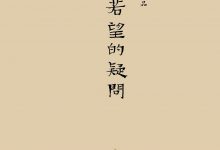 若望的疑問
品